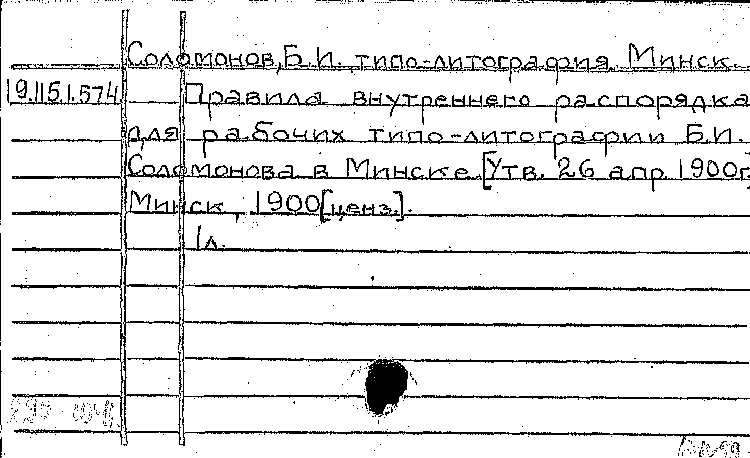 Соломонов, Б.И., типо-литография. Минск.
19.115.1.574 Правила внутреннего распорядка
для рабочих типо-литографии Б.И.
Соломонова в Минске. [Утв. 26 апр. 1900г.
Минск, 1900 [ценз.].
1л.